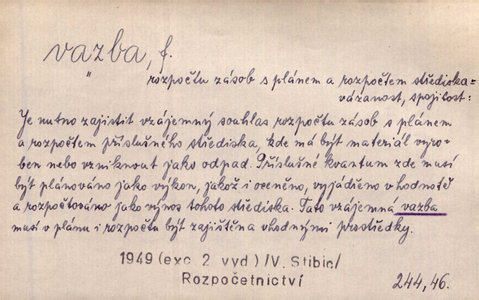 vazba, f.
"
rozpočtu zásob s plánem a rozpočtem střediska -
vázanost, spojilost:
Je nutno zajistit vzájemný souhlas rozpočtu zásob s plánem
a rozpočtem příslušného střediska, kde má být materiál vyro-
ben nebo vzniknout jako odpad. Příslušné kvantum zde musí
být plánováno jako výkon, jakož i oceněno, vyjádřeno v hodnotě
a rozpočtováno jako výnos tohoto střediska. Tato vzájemná vazba
musí v plánu i rozpočtu být zajištěna vhodnými prostředky.
1949 (exc. 2 vyd) /V. Stibic/
Rozpočetnictví
244,46.